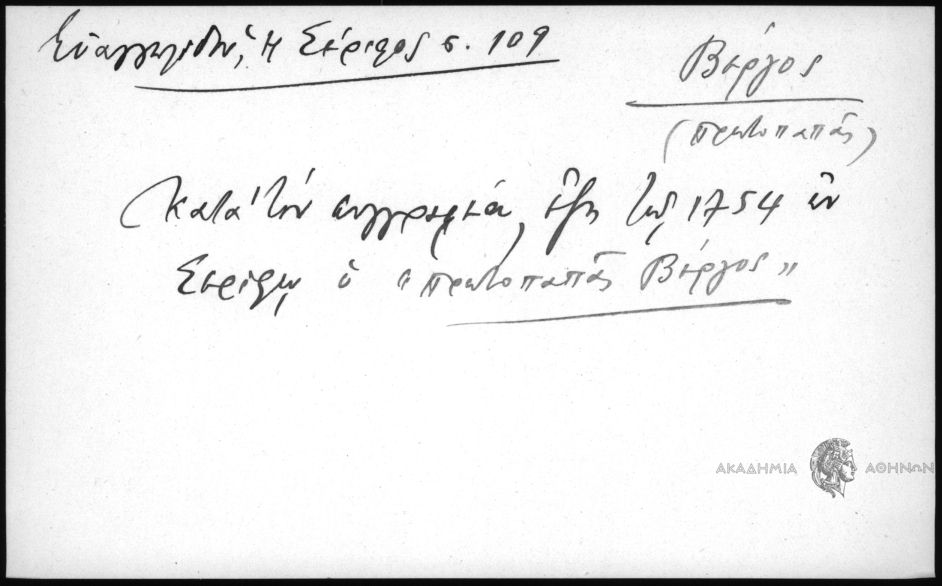 Εὐαγγελίδης, Ἡ Σέριφος σ. 109
Βέργος
(πρωτοπαπᾶς)
Κατὰ τὸν συγγραφέα, ἔζη τῷ 1754 ἐν
Σερίφῳ ὁ "πρωτοπαπᾶς Βέργος"
ΑΚΑΔΗΜΙΑ ΑΘΗΝΩΝ